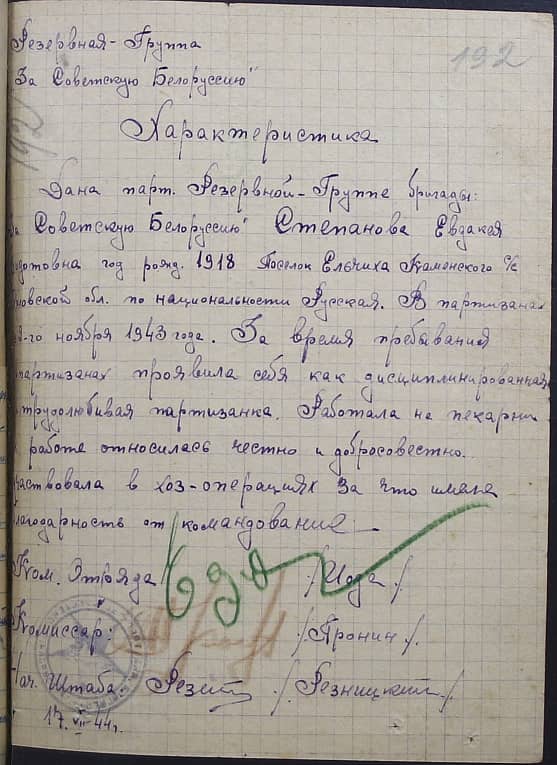 Резервная-Группа
192
За Советскую Белоруссию"
192
Характеристика
Дана парт. Резервной-Группе бригады:
За Советскую Белоруссию" Степанова Евдакея
год рожд. 1918 Поселок Ельчиха Каменского с/с
обл. по национальности Русская. В партизанах
ноября 1943 года. За время пребывания
партизанах проявила себя как дисциплинированная
трудолюбивая партизанка. Работала на пекарни
к работе относилась честно и добросовестно.
участвовала в хоз-операциях за что имела
благодарность от командование
Ком. Отряда /Иода/
Комиссар: /Пронин/
Нач. Штаба Резниц /Резницкий/
17. VII-44г.